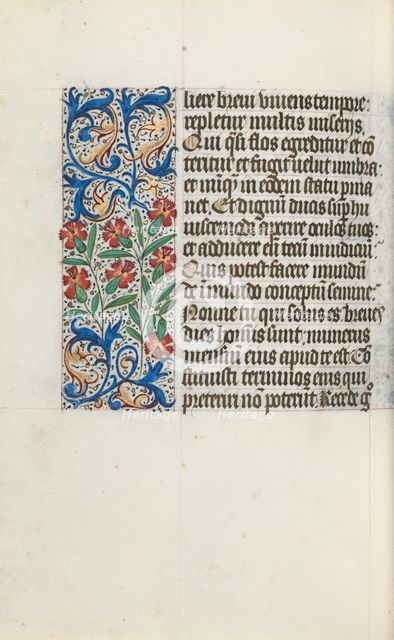 liere breui viuens tempore:
repletur multis miserijs
Qui q̄si flos egreditur et cō
teritur et fugit velut umbra:
et nūq̄ in eodem statu pma
net Et dignum ducis sup hu
iuscemodi aperire oculos tuos:
et adducere eū tecū in iudiciū
Quis potest facere mundū
de inmundo conceptū semine
Nonne tu qui solus es breues
dies hoīs sunt: numerus
mensiū eius apud te est Cō
stituisti terminos eius qui
preteriri nō poterūt Recede g̊
Heritage
Heritage